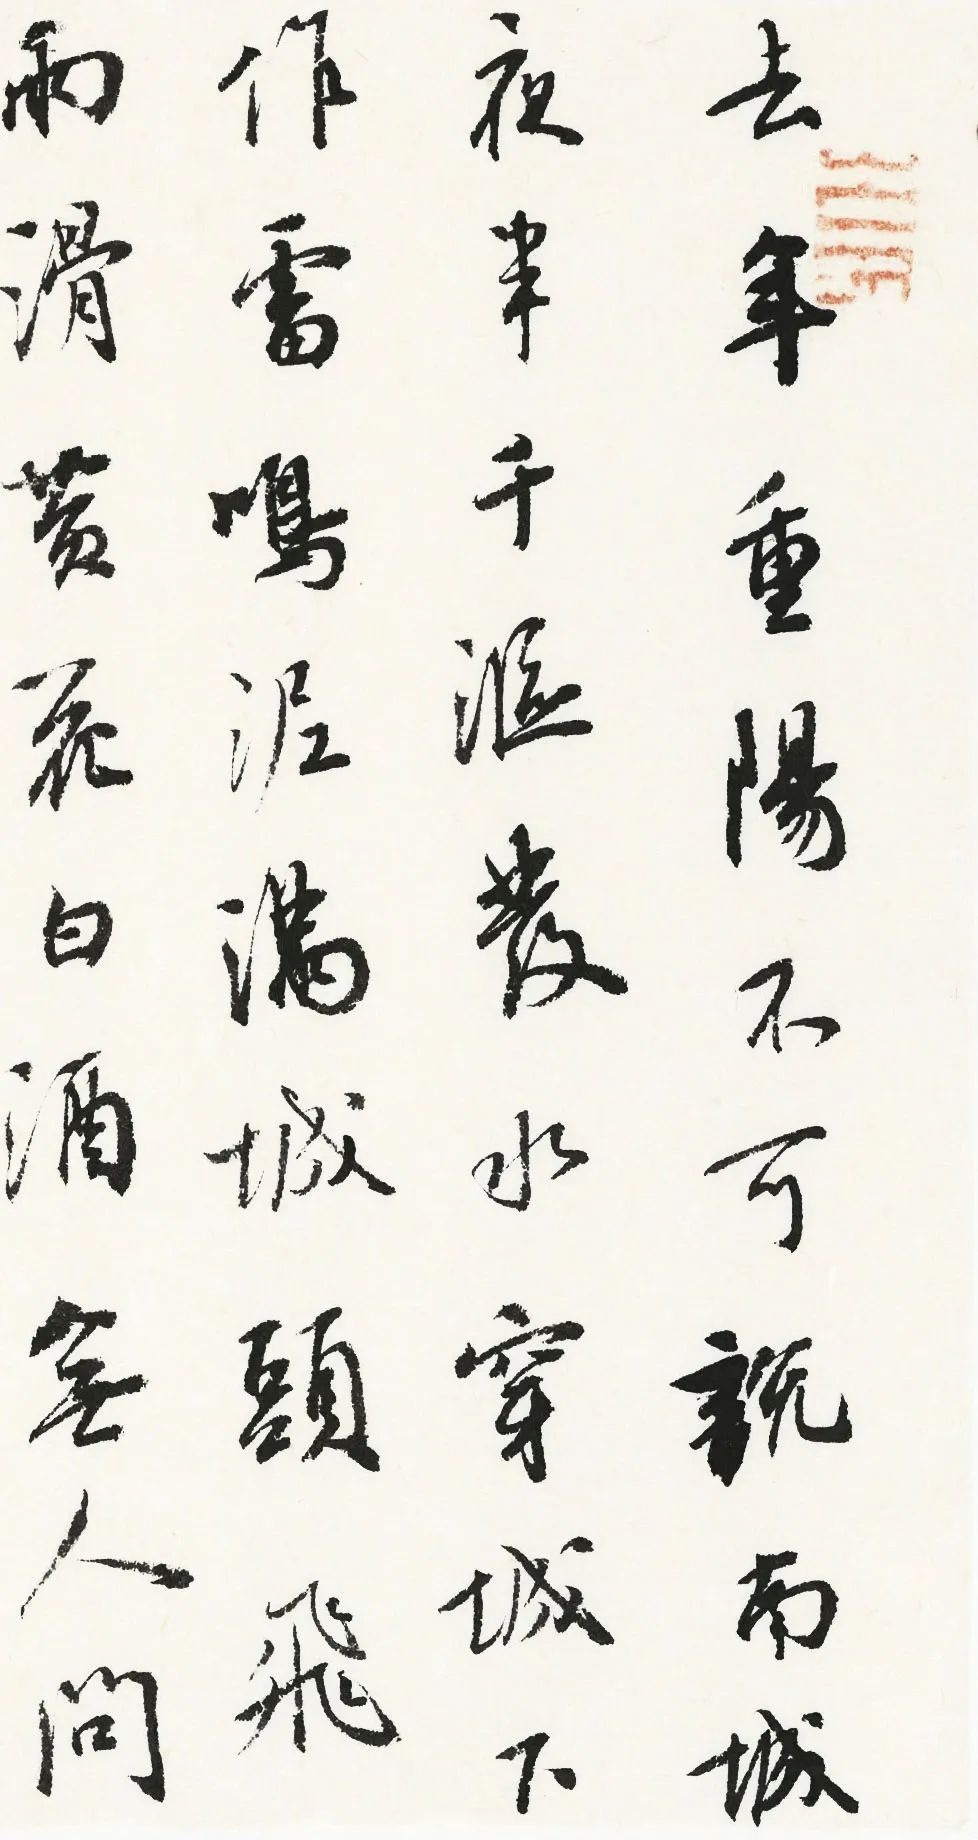 去年重陽不可說南城
夜半千漚發水穿城下
作雷鳴泥滿城頭飛
雨滑黃花白酒無人問